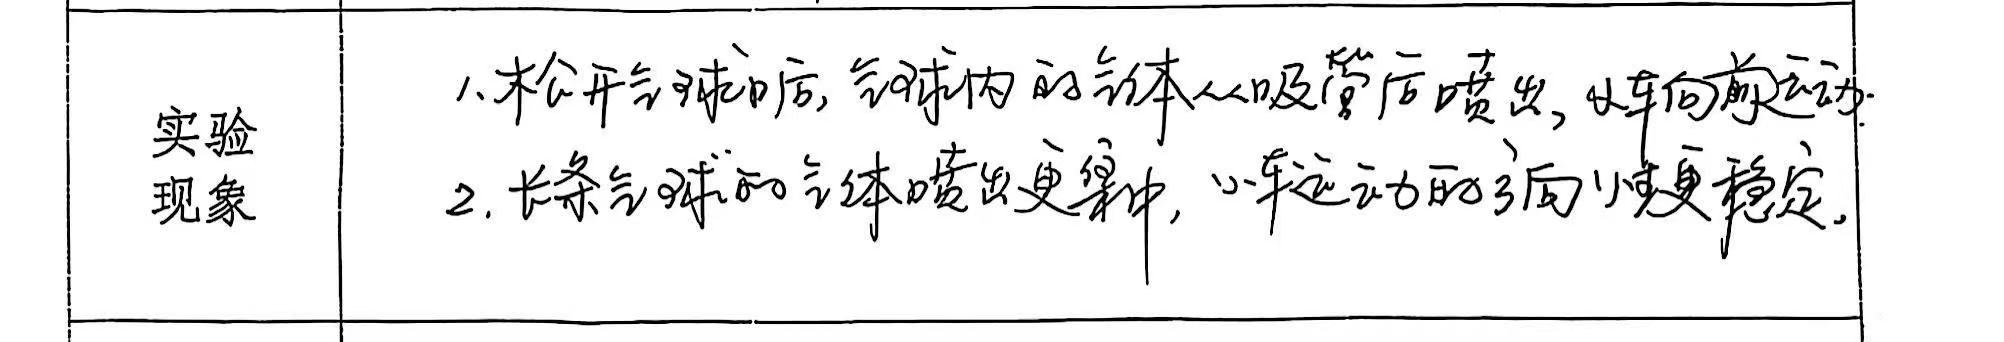 实验
现象
1.松开气球口后,气球内的气体从吸管后喷出,小车向前运动.
2.长条气球的气体喷出更集中,小车运动的方向性更稳定.